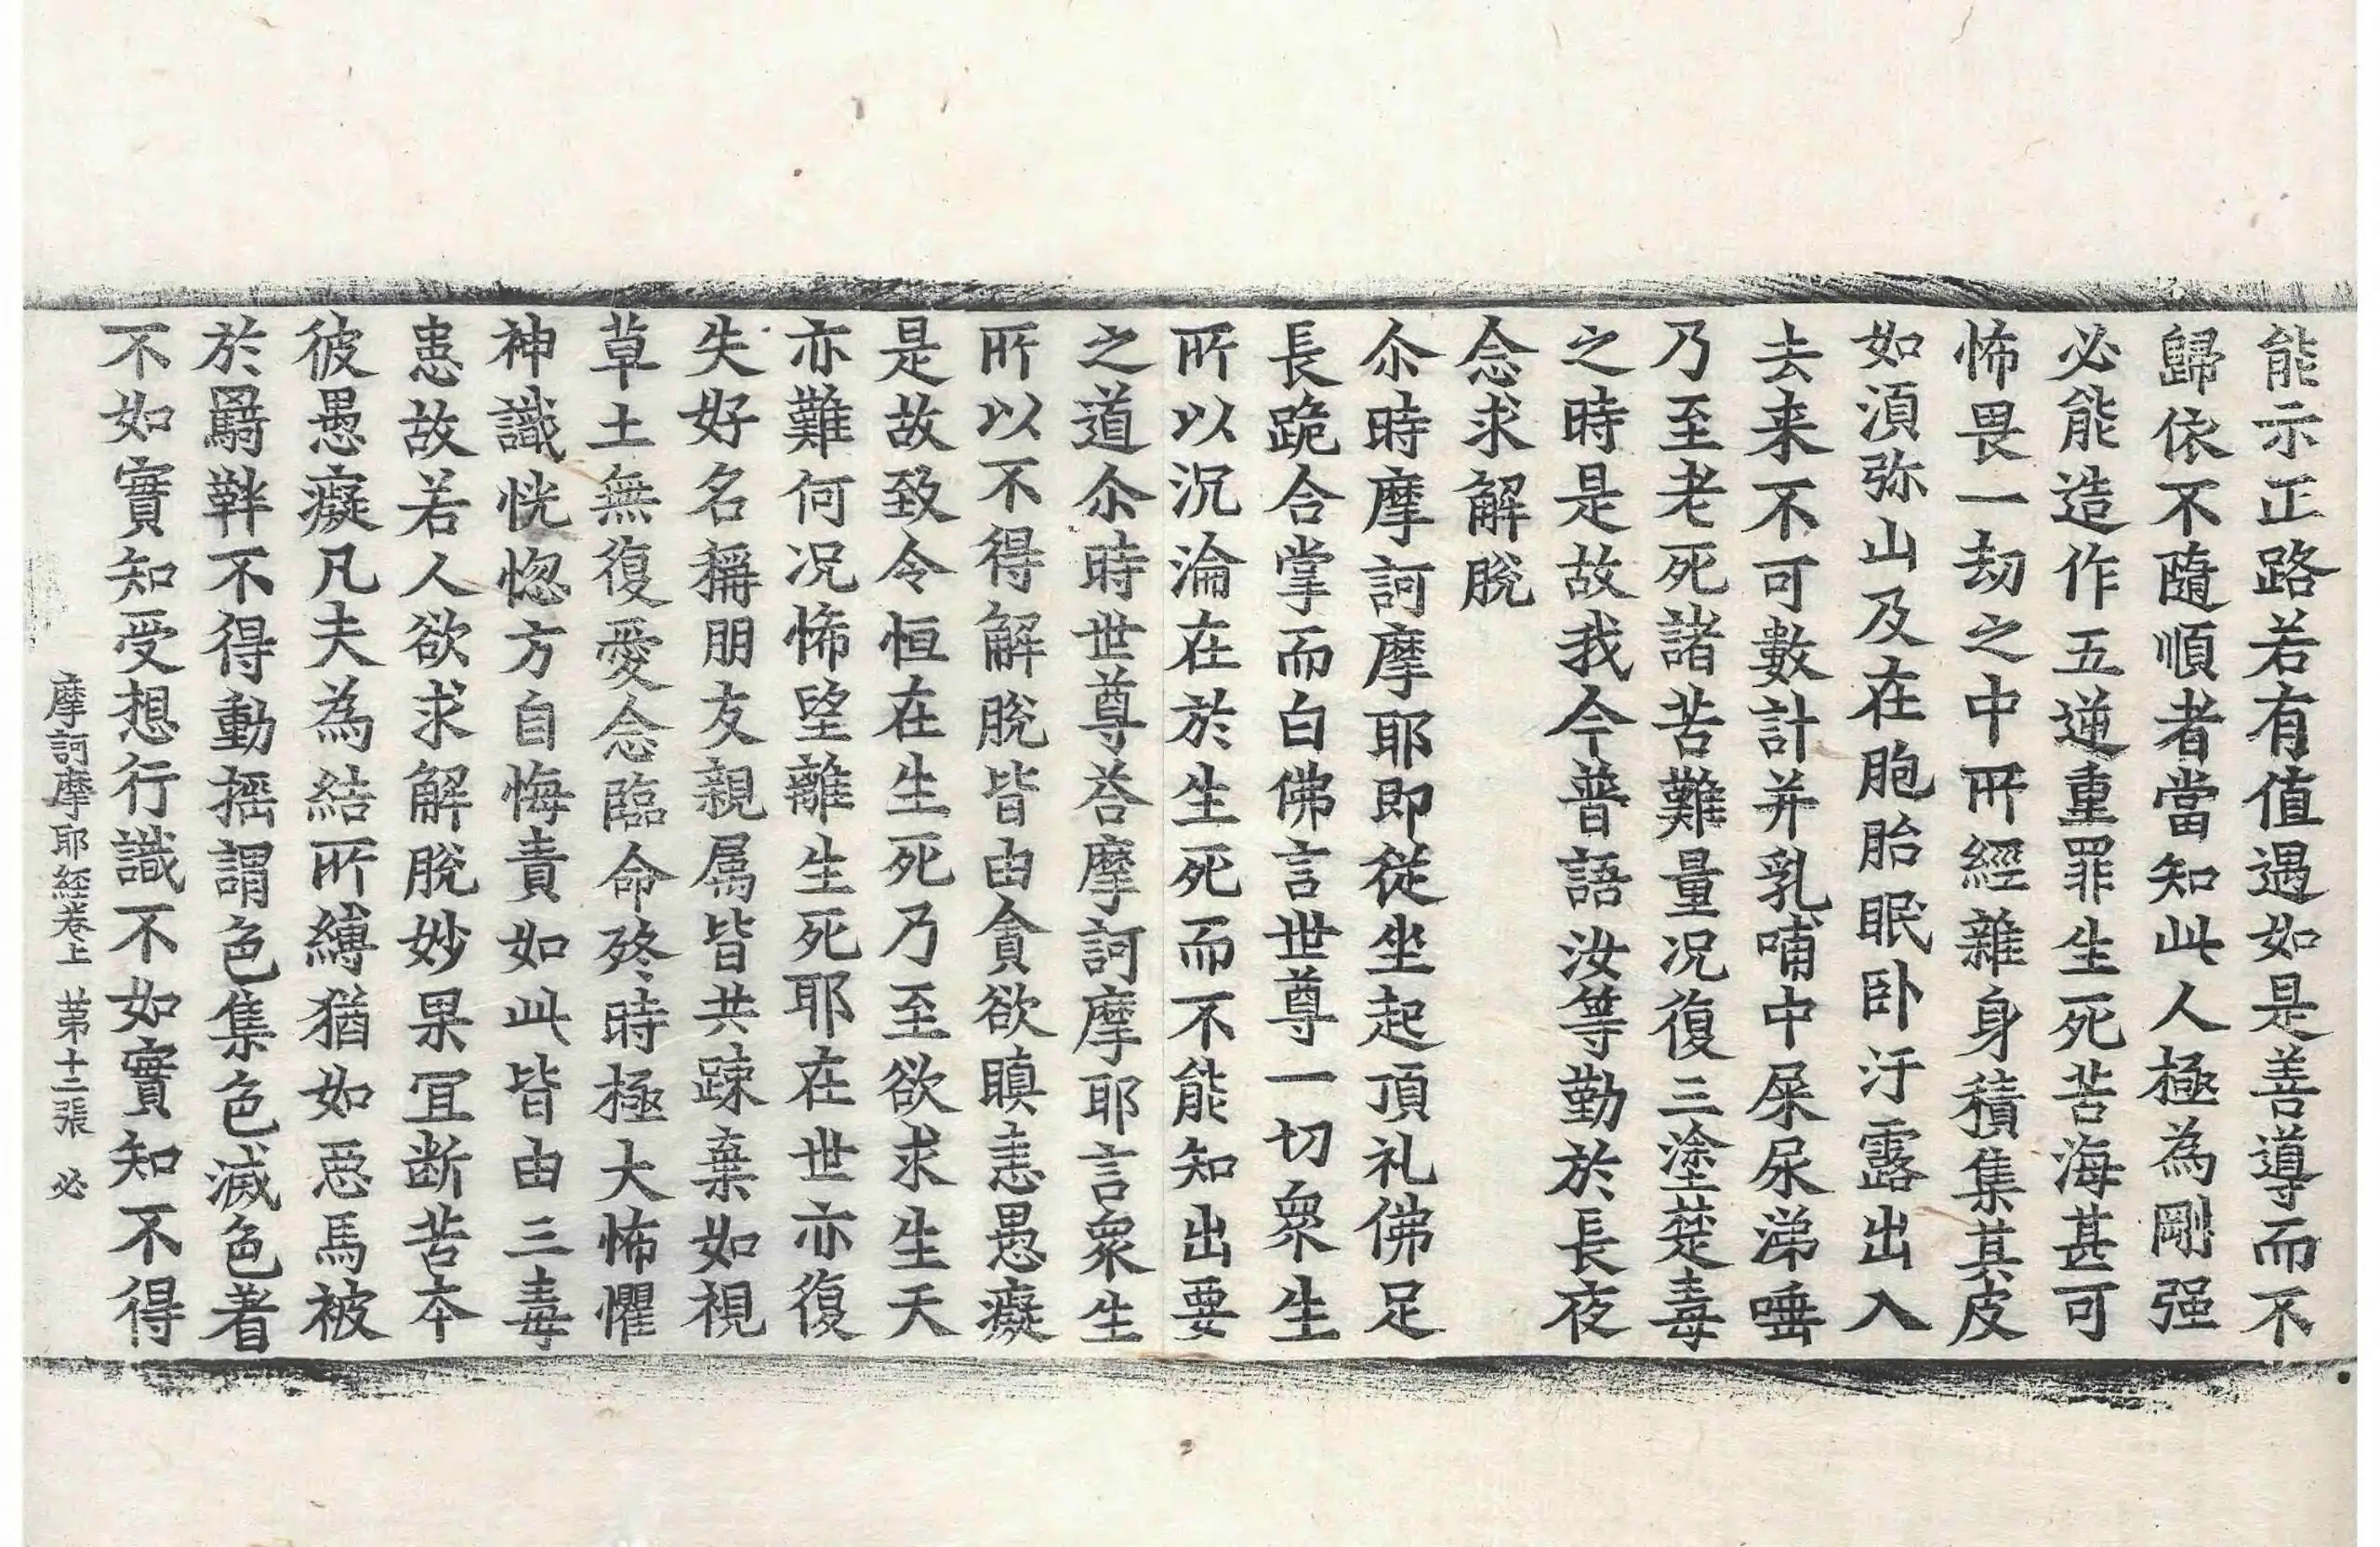 能示正路若有值遇如是善導而不
歸依不隨順者當知此人極為剛强
必能造作五逆重罪生死苦海甚可
怖畏一劫之中所經雜身積集其皮
如湏弥山及在胞胎眠卧汙露出入
去来不可數計并乳哺中屎尿涕唾
乃至老死諸苦難量况復三塗楚毒
之時是故我今普語汝等勤於長夜
念求解脫
尒時摩訶摩耶即從坐起頂礼佛足
長跪合掌而白佛言世尊一切衆生
所以沉淪在於生死而不能知出要
之道尒時世尊荅摩訶摩耶言衆生
所以不得解脫皆由貪欲瞋恚愚癡
是故致令恒在生死乃至欲求生天
亦難何况悕望離生死耶在世亦復
失好名稱朋友親属皆共踈棄如視
草土無復愛念臨命終時極大怖懼
神識恍惚方自悔責如此皆由三毒
患故若人欲求解脫妙果冝断苦本
彼愚癡凡夫為結所縛猶如惡馬被
於羇靽不得動揺謂色集色滅色着
不如實知受想行識不如實知不得
摩訶摩耶経卷上 苐十二張 必